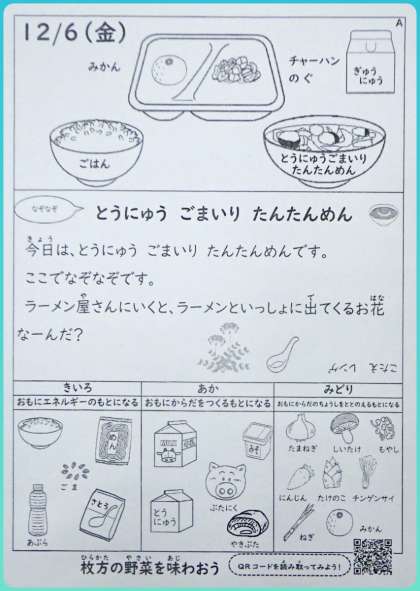 12/6(金)
A
みかん
チャーハン
のぐ
ぎゅう
にゅう
ごはん
とうにゅうごまいり
たんたんめん
なぞなぞ
とうにゅう ごまいり たんたんめん
きょう
今日は、とうにゅう ごまいり たんたんめんです。
ここでなぞなぞです。
や で はな
ラーメン屋さんにいくと、ラーメンといっしょに出てくるお花
なーんだ?
こたえ レンゲ
きいろ
あか
みどり
おもにエネルギーのもとになる
おもにからだをつくるもとになる
おもにからだのちょうしをととのえるもとになる
めん
MILK
みそ
たまねぎ
しいたけ
もやし
ごま
ぶたにく
にんじん
たけのこ
チンゲンサイ
さとう
とう
にゅう
あぶら
やきぶた
ねぎ
みかん
ひらかた やさい あじ
枚方の野菜を味わおう
QRコードを読み取ってみよう!